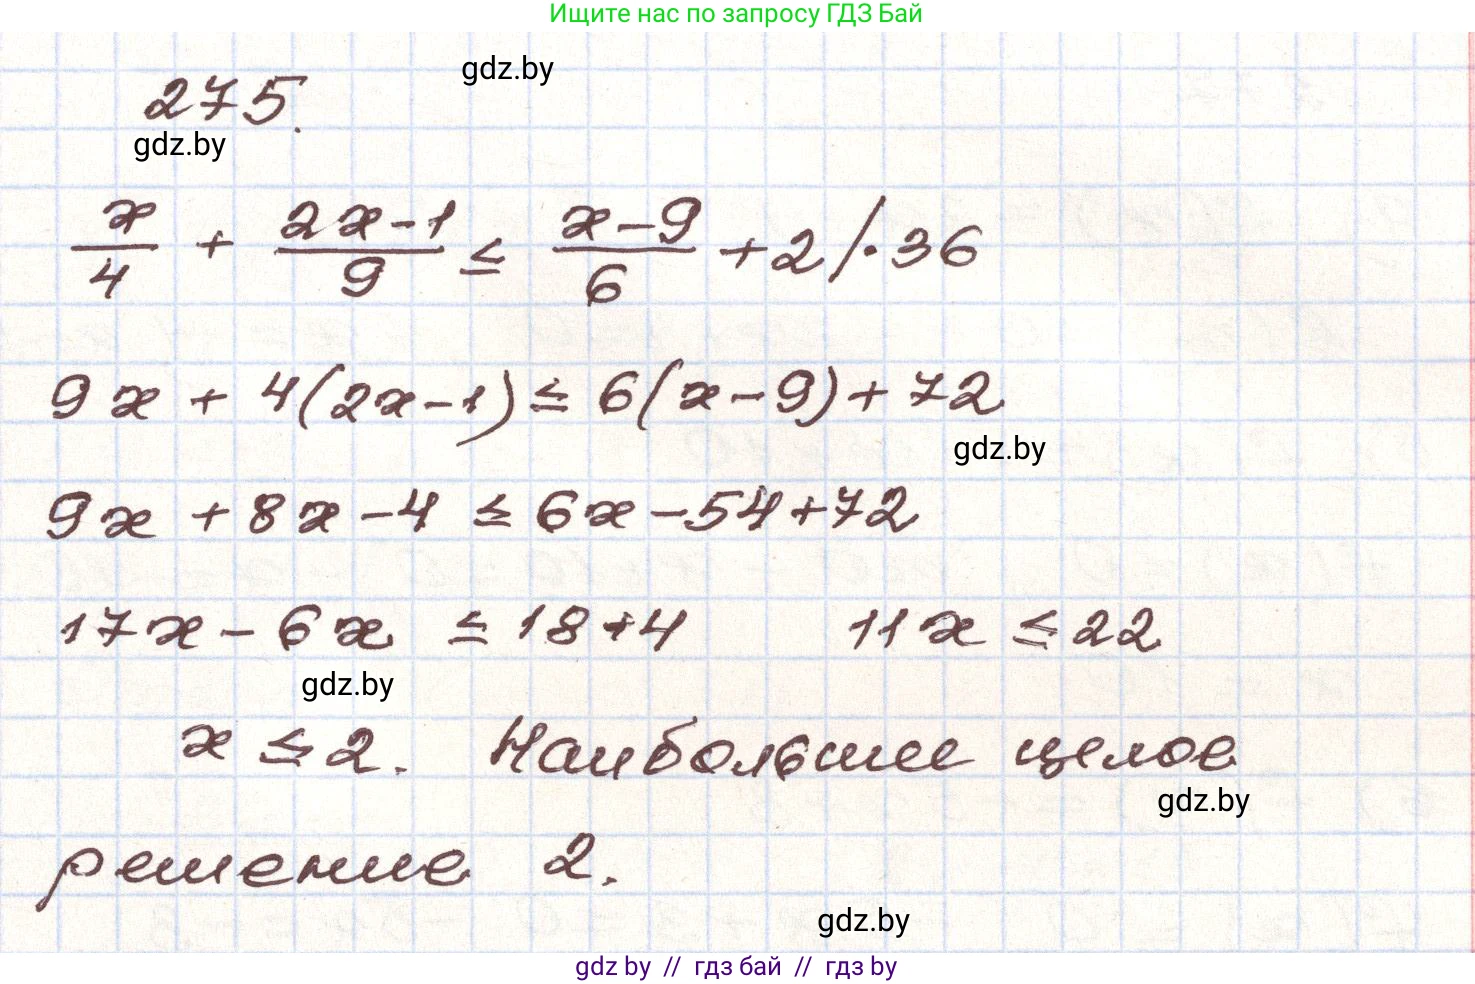 Ищите нас по запросу ГДЗ Бай
gdz.by
275.
gdz.by
x/4 + (2x-1)/9 ≤ (x-9)/6 + 2 /·36
9x + 4(2x-1) ≤ 6(x-9) + 72
gdz.by
9x + 8x - 4 ≤ 6x - 54 + 72
17x - 6x ≤ 18 + 4 11x ≤ 22
gdz.by
x ≤ 2. Наибольшее целое
gdz.by
решение 2.
gdz.by
gdz by // гдз бай // гдз by